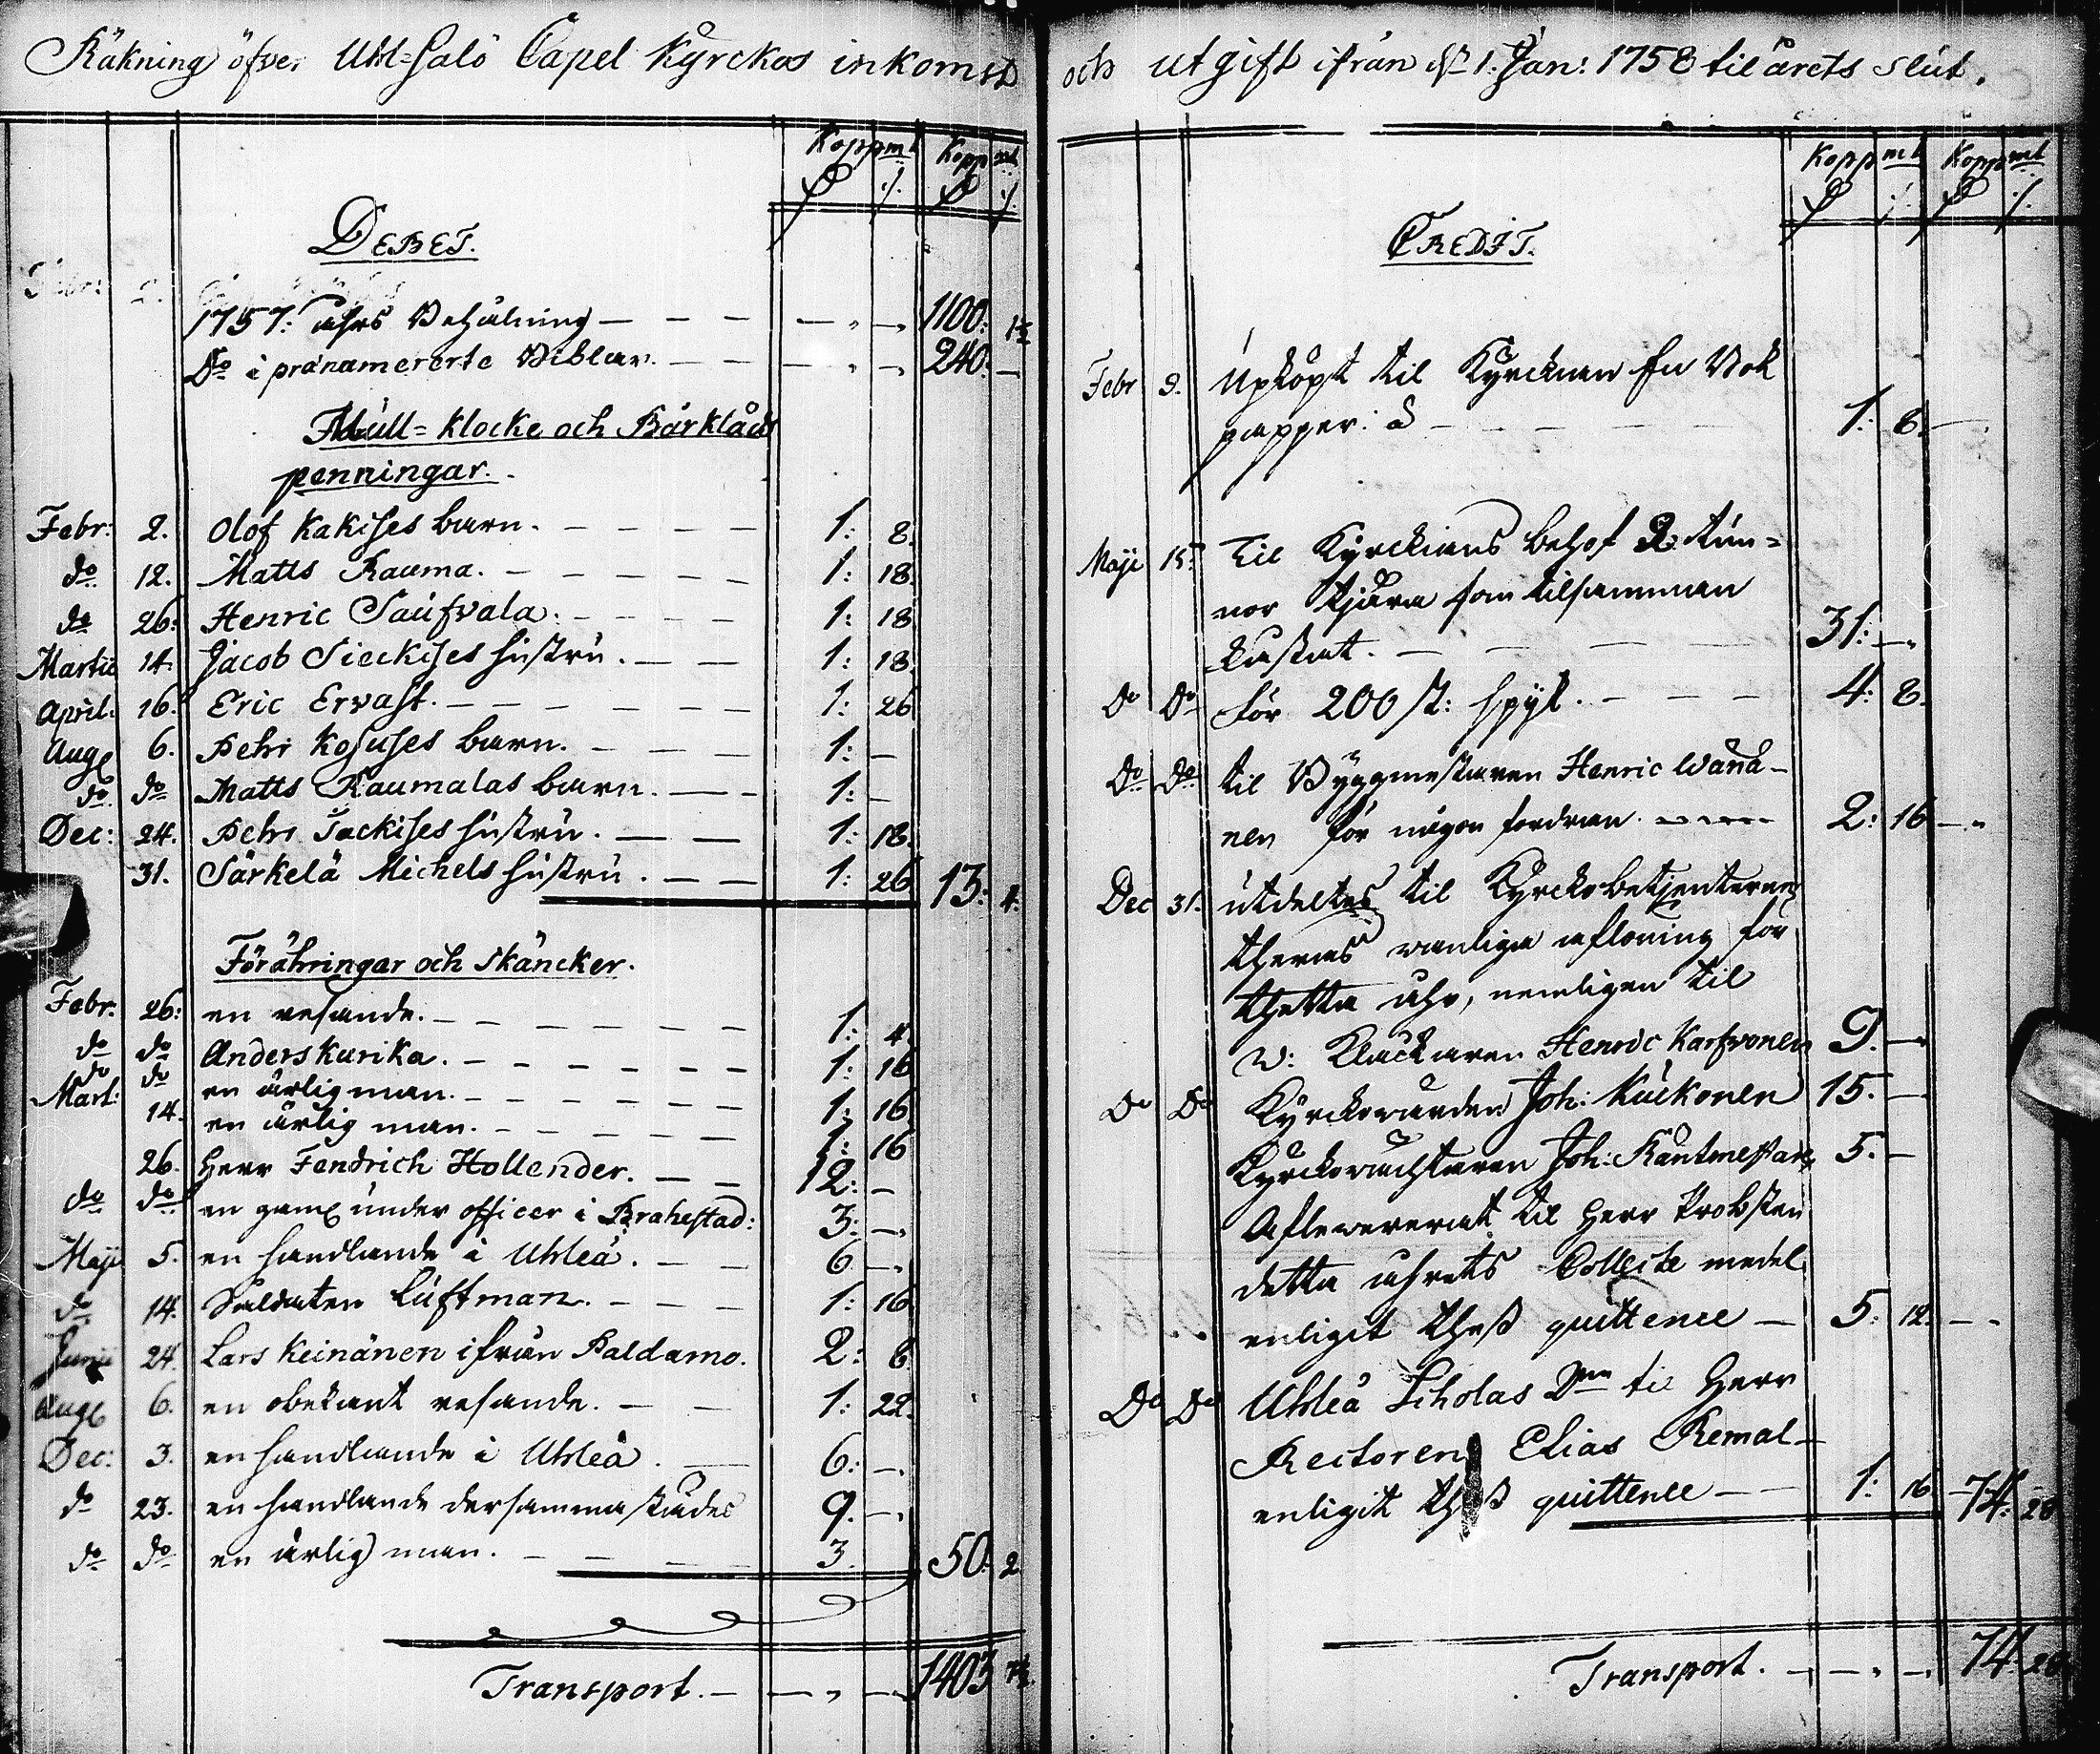 Räkning öfver Uhl=Salo Capel Kyrckos inkomst och utgift ifrån d. 1. Jan: 1758 til årets slut.
Koppmt Koppmt
DEBET.
1757: åhrs Behålning — — — — 1100: 1½
Do i prænumererte Biblar. — — — 240. —
Mull=Klocke och Bårkläds
penningar.
Febr: 2. Olof Kakises barn. — — — 1: 8.
do 12. Matts Rauma. — — — 1: 18.
do 26: Henric Saufvala. — — — 1: 18
Martii 14. Jacob Sieckises hustru. — — 1: 18.
April: 16. Eric Ervast. — — — 1: 26
Aug 6. Pehr Kosuses barn. — — — 1: —
do do Matts Raumalas barn. — — 1: —
Dec: 24. Pehr Jackises hustru. — — 1: 18.
31. Särkelä Michels hustru. — — 1: 26 13: 4.
Föräringar och Skäncker.
Febr: 26: en resande. — — — 1: 4
do do Anders Kurika. — — — 1: 16
do do en ärlig man. — — — 1: 16
Mart: 14. en ärlig man. — — — 1: 16
26. Herr Fendrich Hollender. — — 12: —
do do en gaml under officer i Brahestad: 3: —
Maji 5. en handlande i Uhleå. — — 6 —
do 14. Soldaten Luftman. — — — 1: 16
Junii 24. Lars Keinänen ifrån Paldamo. 2: 8
Aug 6. en obekant resande. — — 1: 22.
Dec: 3. en handlande i Uhleå. — 6: —
do 23. en handlande dersammastädes 9. —
do do en ärlig man. — — — 3. 50: 2.
Transport. — — — 1403 7½.
Koppmt Koppmt
CREDIT.
Febr 9. Upköpt til Kyrckan en Bok
papper: à — — — 1: 8. —
Maji 15. til Kyrckians behof 2 tun=
nor tjära som tilsamman
kostat. — — — 31: —
Do Do för 200 st: spijk. — — — 4: 8.
Do Do til Byggmestaren Henric Wänä-
nen för någon fordran. — 2: 16 —
Dec 31. utdeltes til Kyrckobetjenterne
theras vanliga aflöning för
thetta åhr, nemligen til
v: Klåckaren Henric Karfvonen 9. —
Do Do Kyrckovärden Joh: Kuckonen 15. —
Kyrckovachtaren Joh: Rantmestare 5. —
Aflevererat til Herr Probsten
detta åhrets Collecte medel
enligit theß quittence — 5. 12. —
Do Do Uhleå Scholas til Herr
Rectoren Elias Remal-
enligit theß quittence — — 1: 16 — 74: 28
Transport. — — — 74: 28